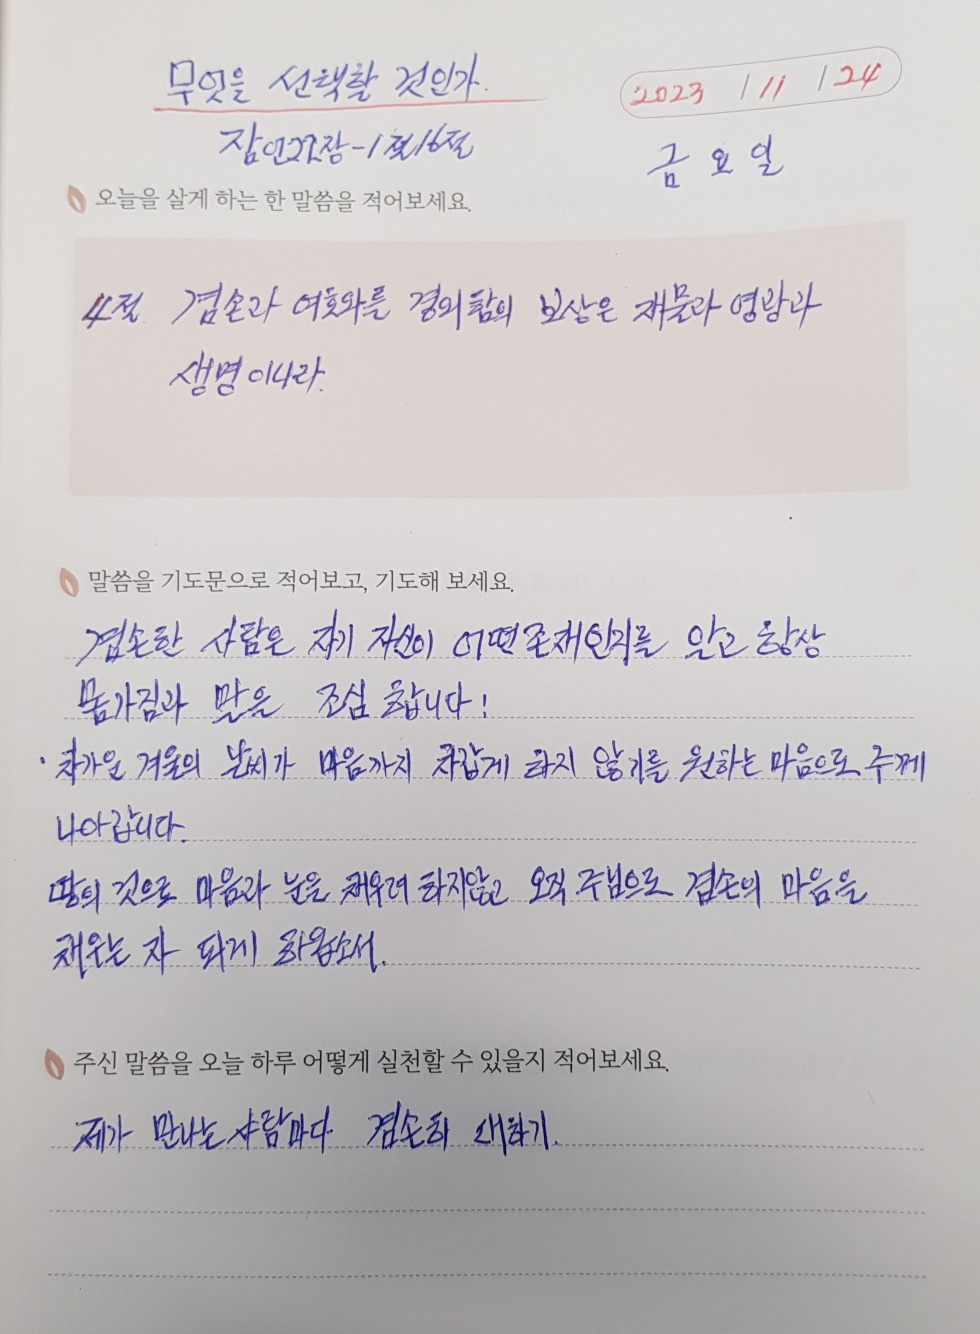 무엇을 선택할 것인가.
2023 / 11 / 24
잠언22장-1절16절
금요일
오늘을 살게 하는 한 말씀을 적어보세요.
4절 겸손과 여호와를 경외함의 보상은 재물과 영광과
생명이니라.
말씀을 기도문으로 적어보고, 기도해 보세요.
겸손한 사람은 자기 자신이 어떤존재인지를 알고 항상
몸가짐과 말을 조심 합니다!
· 차가운 겨울의 날씨가 마음까지 차갑게 하지 않기를 원하는 마음으로 주께
나아갑니다.
땅의 것으로 마음과 눈을 채우려 하지않고 오직 주님으로 겸손의 마음을
채우는 자 되게 하옵소서.
주신 말씀을 오늘 하루 어떻게 실천할 수 있을지 적어보세요.
제가 만나는 사람마다 겸손히 대하기.